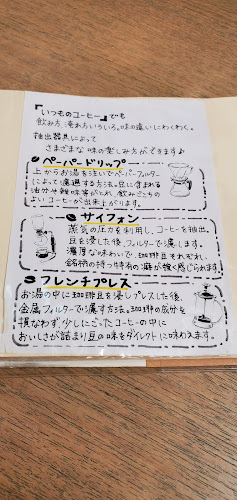 『いつものコーヒー』でも
飲み方・淹れ方いろいろ。味の違いにわくわく。
抽出器具によって
さまざまな味の楽しみ方ができます♪
ペーパードリップ
上からお湯を注いでペーパーフィルター
によって濾過する方法。豆に含まれる
油分や雑味等がとれ、飲みごこちの
よいコーヒーが出来上がります。
サイフォン
蒸気の圧力を利用し、コーヒーを抽出。
豆を浸した後、フィルターで濾します。
濃厚な味わいで、珈琲豆それぞれ
銘柄の持つ特有の癖が強く感じられます。
フレンチプレス
お湯の中に珈琲豆を浸しプレスした後、
金属フィルターで濾す方法。珈琲の成分を
損なわず少しにごったコーヒーの中に
おいしさが詰まり豆の味をダイレクトに味わえます。